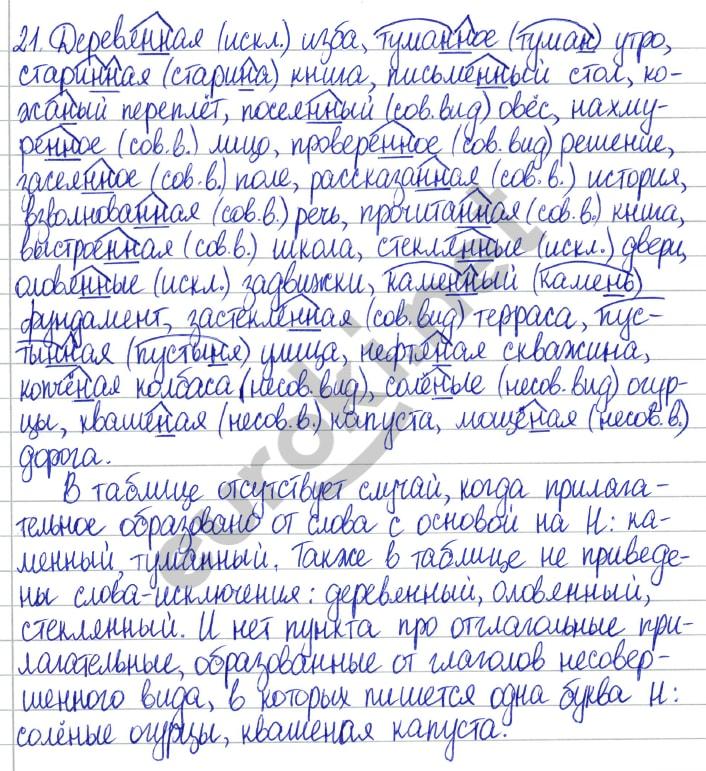 21. Деревянная (искл.) изба, туманное (туман) утро,
старинная (старина) книга, письменный стол, ко-
жаный переплёт, посеянный (сов. вид) овёс, нахму-
ренное (сов.в.) лицо, проверенное (сов. вид) решение,
засеянное (сов.в.) поле, рассказанная (сов. в.) история,
взволнованная (сов.в.) речь, прочитанная (сов.в.) книга,
выстроенная (сов.в.) школа, стеклянные (искл.) двери,
оловянные (искл.) задвижки, каменный (камень)
фундамент, застеклённая (сов.вид) терраса, пус-
тынная (пустыня) улица, нефтяная скважина,
копчёная колбаса (несов.вид), солёные (несов.вид) огур-
цы, квашеная (несов.в.) капуста, мощёная (несов.в.)
дорога.
В таблице отсутствует случай, когда прилага-
тельное образовано от слова с основой на Н: ка-
менный, туманный. Также в таблице не приведе-
ны слова-исключения: деревянный, оловянный,
стеклянный. И нет пункта про отглагольные при-
лагательные, образованные от глаголов несовер-
шенного вида, в которых пишется одна буква Н:
солёные огурцы, квашеная капуста.
euroki.net